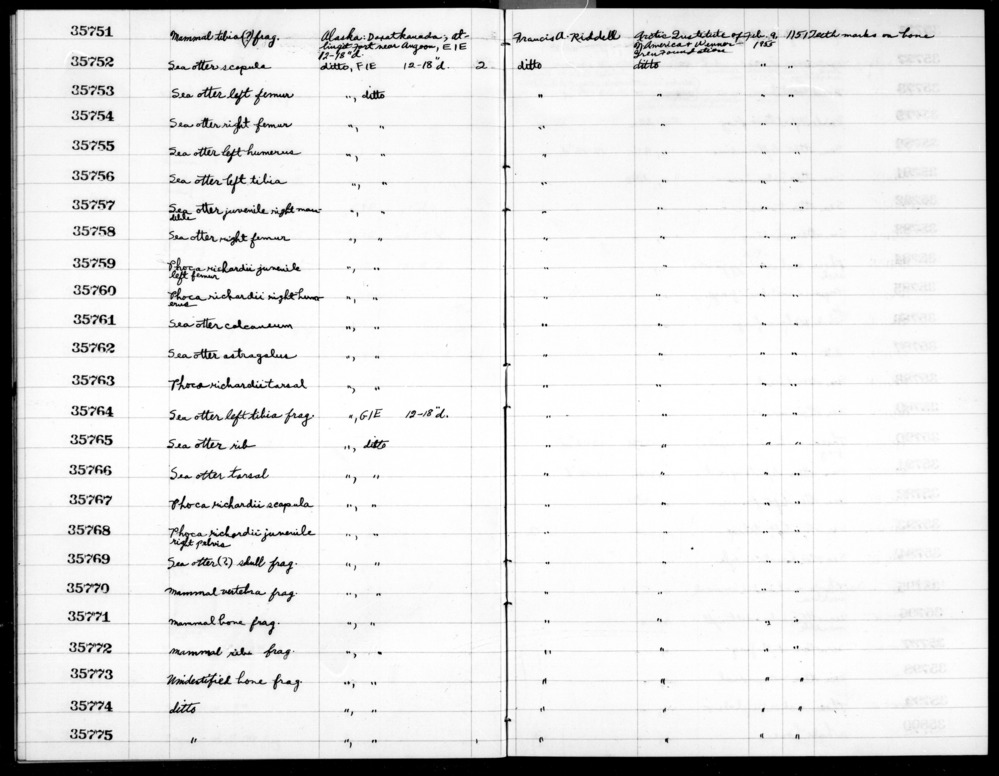 35751 Mammal tibia (?) frag. Alaska: Dapatkanada; at- Francis A. Riddell Arctic Institute of Feb. 9, 1151 Teeth marks on bone
tlingit fort near Angoon, E1E of America & Wenner- 1955
12-18"d. Gren Foundation
35752 Sea otter scapula ditto, F1E 12-18"d. 2 ditto ditto " "
35753 Sea otter left femur ", ditto " " " "
35754 Sea otter right femur ", " " " " "
35755 Sea otter left humerus ", " " " " "
35756 Sea otter left tibia ", " " " " "
35757 Sea otter juvenile right man- ", " " " " "
dible
35758 Sea otter right femur ", " " " " "
35759 Phoca richardii juvenile ", " " " " "
left femur
35760 Phoca richardii right hum- ", " " " " "
erus
35761 Sea otter calcaneum ", " " " " "
35762 Sea otter astragalus ", " " " " "
35763 Phoca richardii tarsal ", " " " " "
35764 Sea otter left tibia frag. ", G1E 12-18"d. " " " "
35765 Sea otter rib ", ditto " " " "
35766 Sea otter tarsal ", " " " " "
35767 Phoca richardii scapula ", " " " " "
35768 Phoca richardii juvenile ", " " " " "
right pelvis
35769 Sea otter (?) skull frag. ", " " " " "
35770 Mammal vertebra frag. ", " " " " "
35771 Mammal bone frag. ", " " " " "
35772 Mammal rib frag. ", " " " " "
35773 Unidentified bone frag. ", " " " " "
35774 ditto ", " " " " "
35775 " ", " 1 " " " "